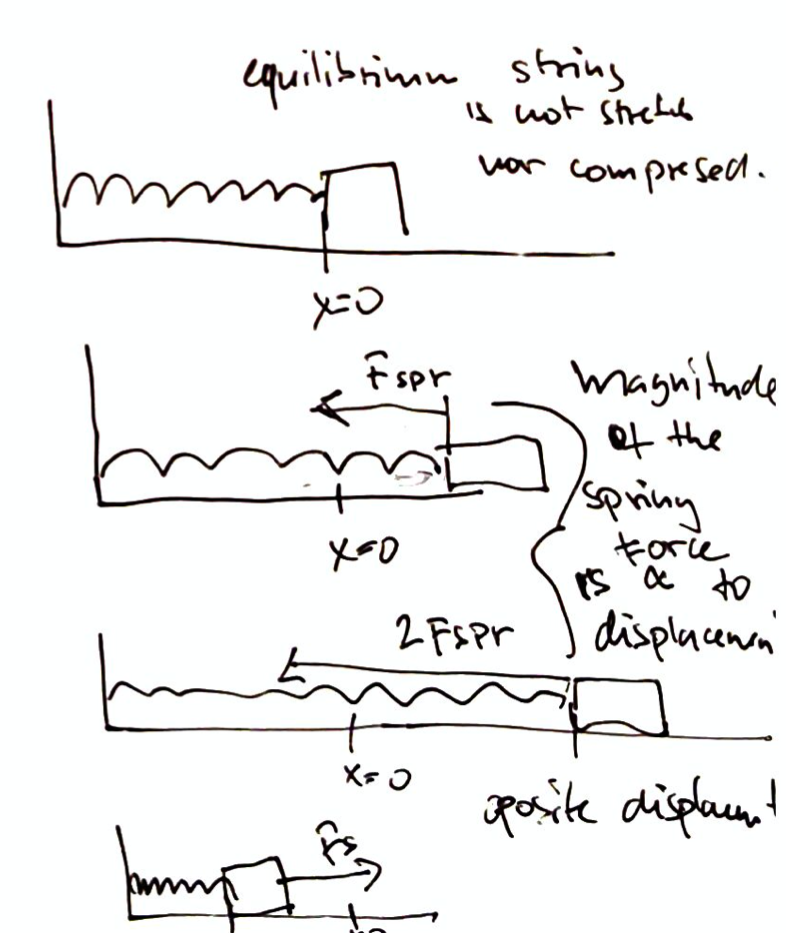 equilibrium string
is not stretch
nor compresed.
x=0
Fspr
magnitude
of the
spring
Force
is ∝ to
x=0
2Fspr
displacemen
x=0
oposite displacmt
Fs